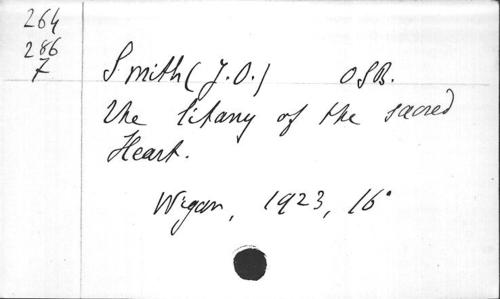 264
286
7
Smith (J.O.) OSB.
The litany of the sacred
Heart.
Wigan, 1923, 16°